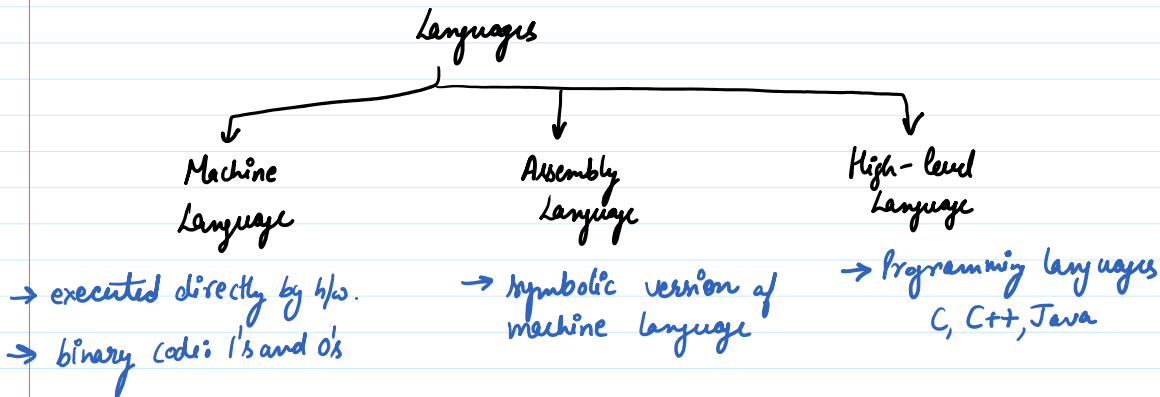 Languages
Machine
Language
→ executed directly by h/w.
→ binary code: 1's and 0's
Assembly
Language
→ symbolic version of
machine language
High-level
Language
→ Programming languages
C, C++, Java